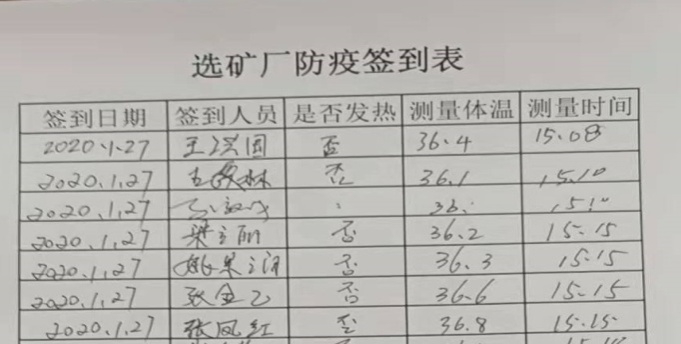 选矿厂防疫签到表
签到日期 签到人员 是否发热 测量体温 测量时间
2020.1.27 王 国 否 36.4 15.08
2020.1.27 王 林 否 36.1 15.10
2020.1.27 36. 15 10
2020.1.27 梁立 否 36.2 15-15
2020.1.27 姚 否 36.3 15.15
2020.1.27 张金乙 否 36.6 15-15
2020.1.27 张凤红 否 36.8 15.15